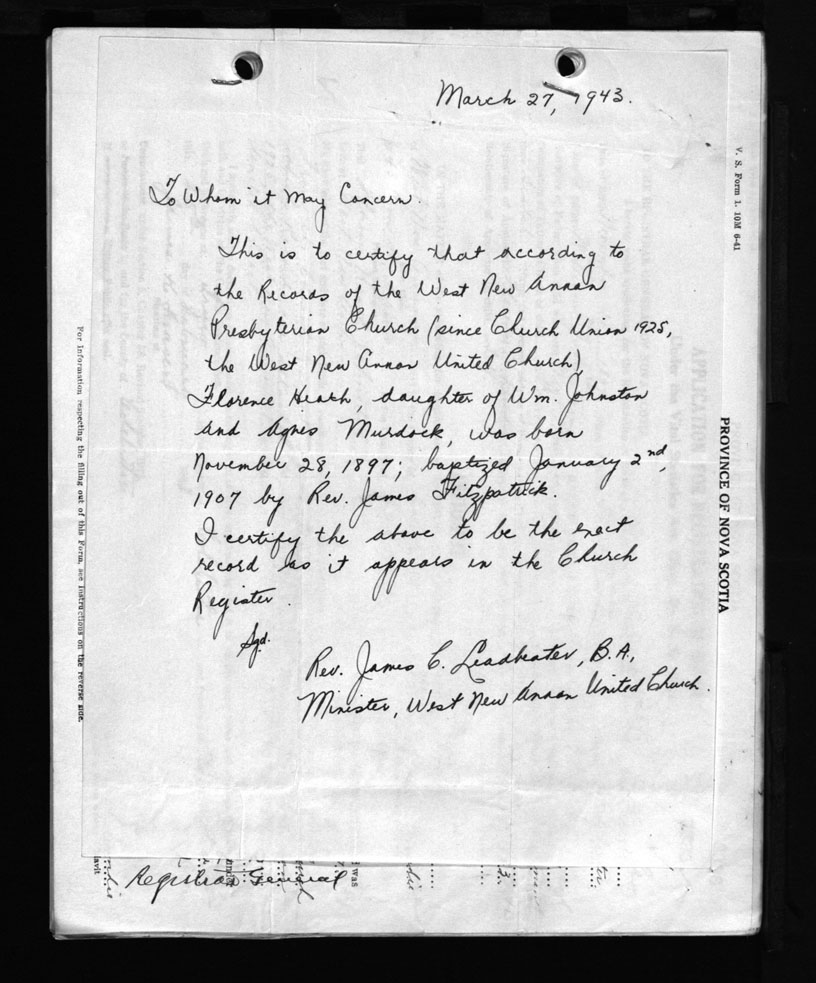 March 27, 1943.
To Whom it May Concern.
This is to certify that according to
the Records of the West New Annan
Presbyterian Church (since Church Union 1925,
the West New Annan United Church),
Florence Heath, daughter of Wm. Johnston
and Agnes Murdock, was born
November 28, 1897; baptized January 2nd,
1907 by Rev. James Fitzpatrick.
I certify the above to be the exact
record as it appears in the Church
Register.
Sgd.
Rev. James C. Leadbeater, B.A.,
Minister, West New Annan United Church.
Registrar General
V. S. Form 1. 10M 6-41
PROVINCE OF NOVA SCOTIA
For information respecting the filling out of this Form, see instructions on the reverse side.
was